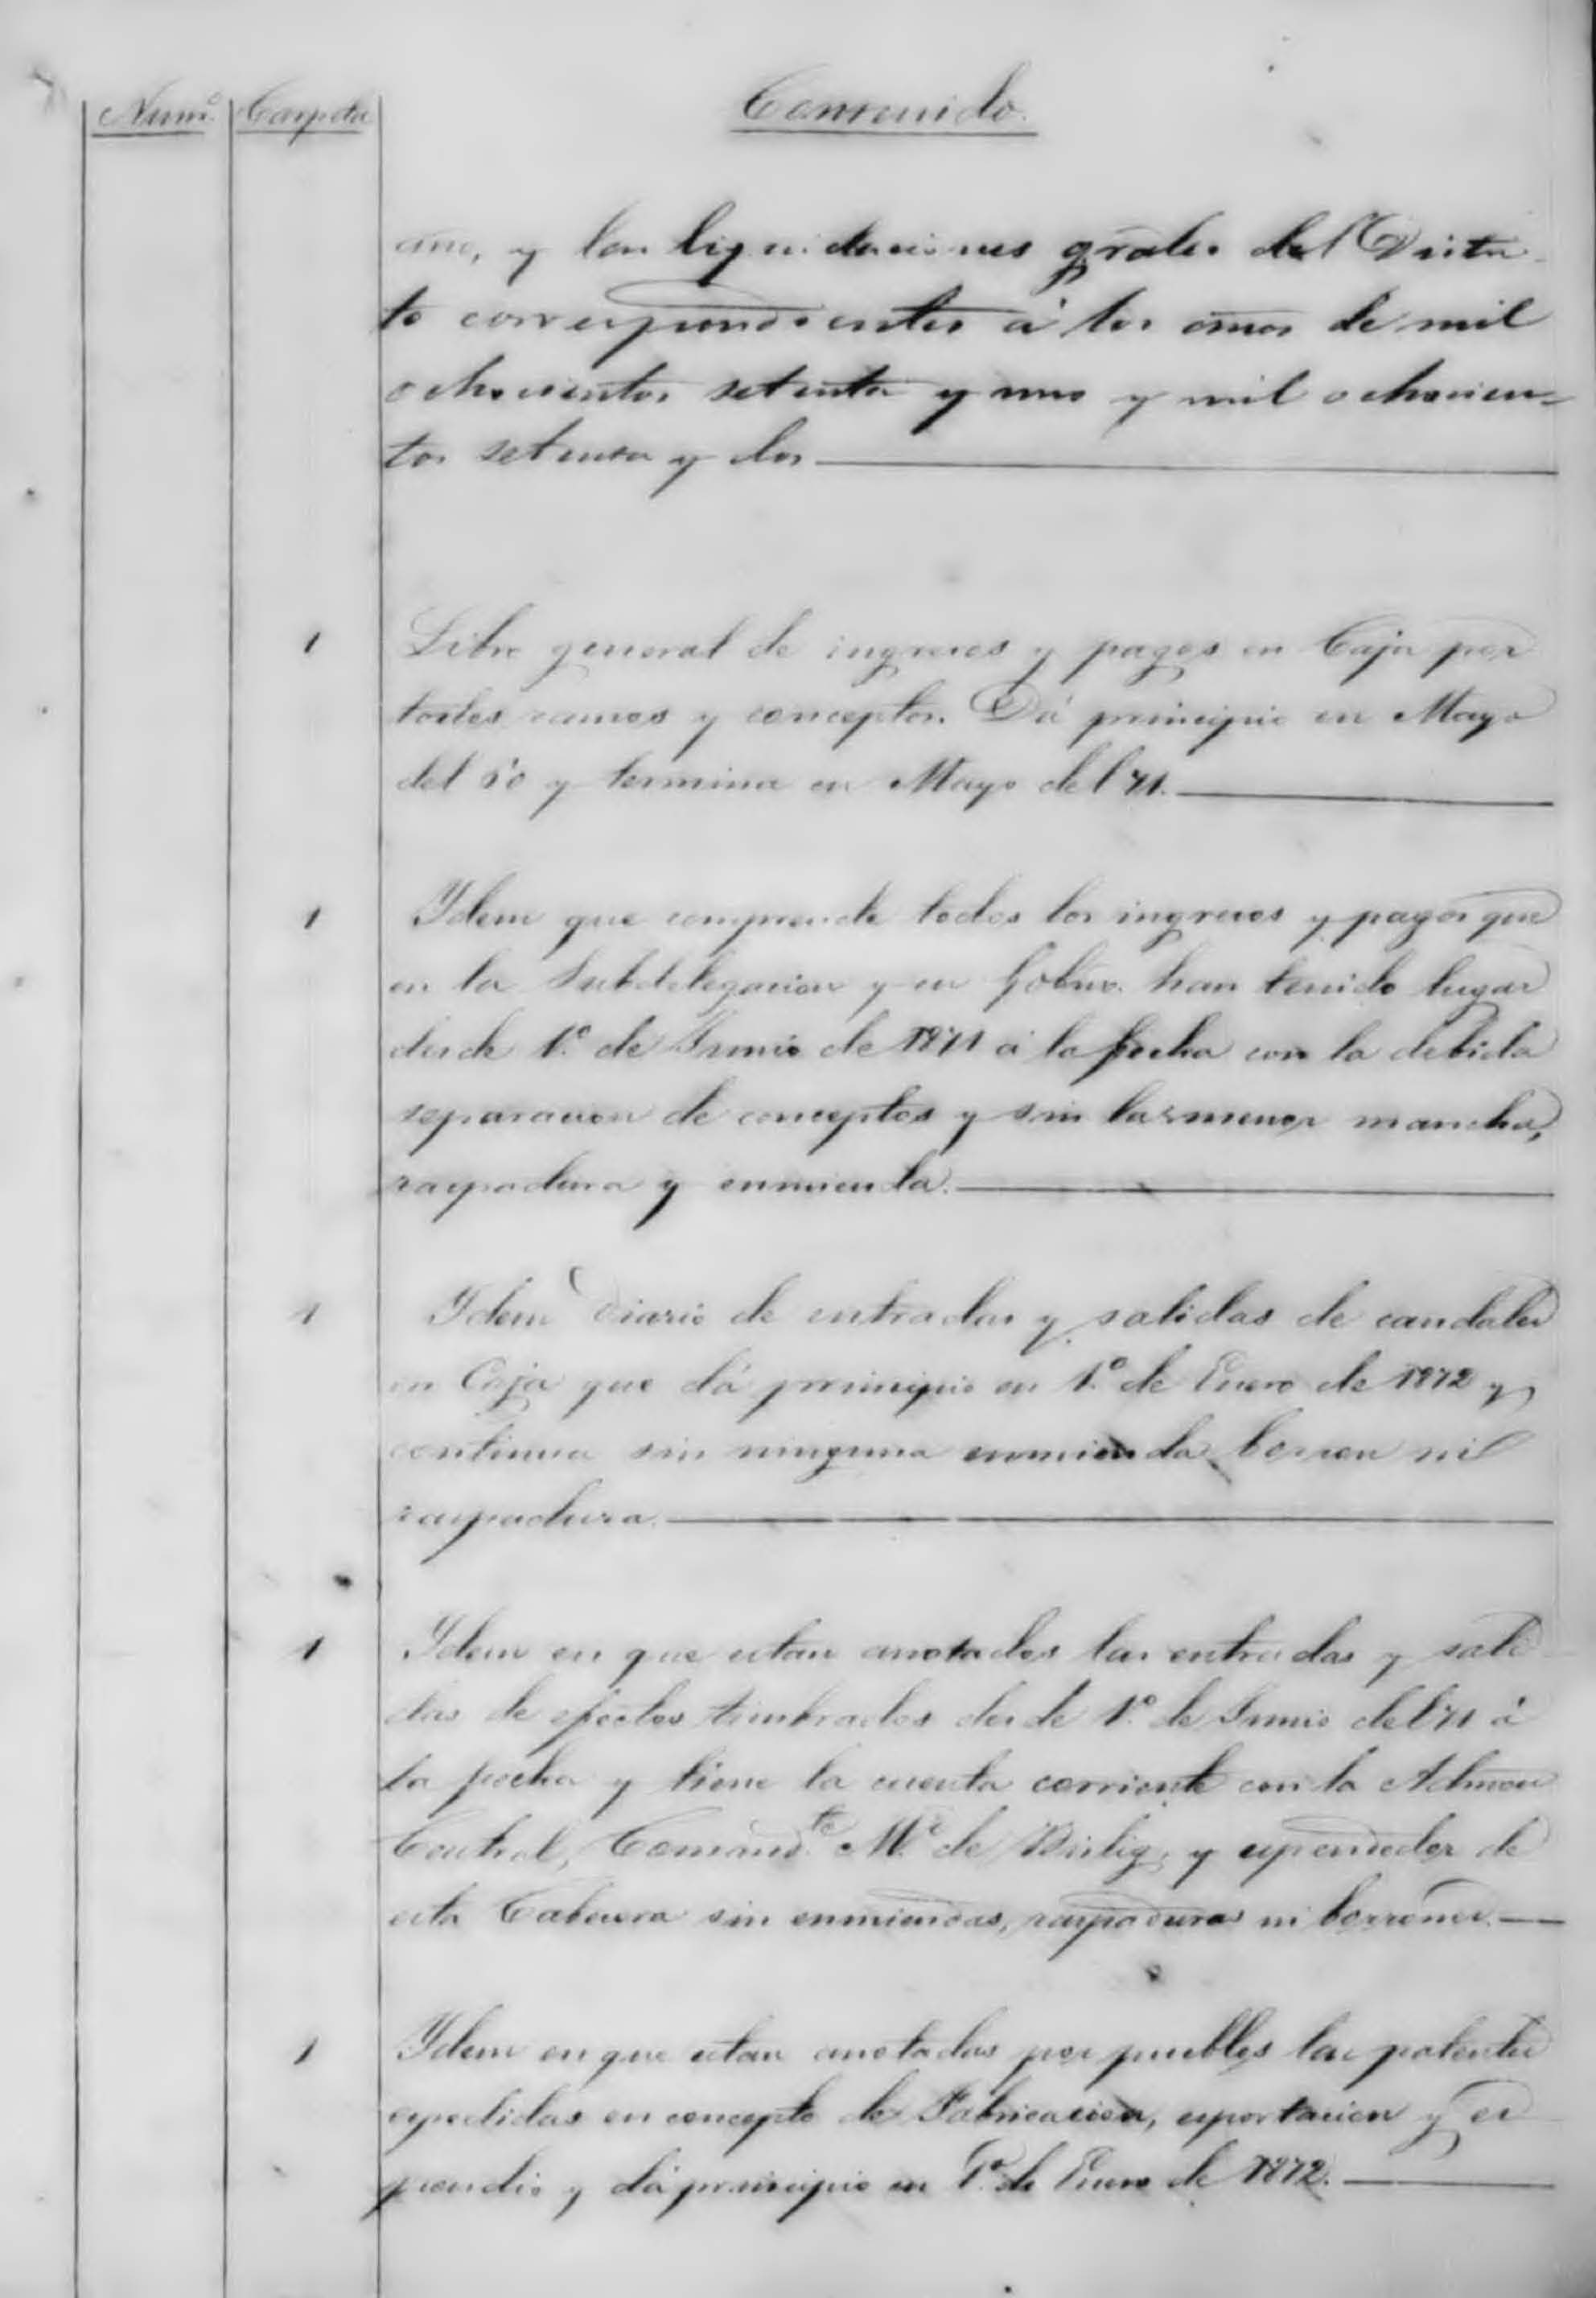 Numº Carpeta Contenido.
año, y las liquidaciones grales. del Distri-
to correspondientes á los años de mil
ochocientos setenta y uno y mil ochocien=
tos setenta y dos
1 Libro general de ingresos y pagos en Caja por
todos ramos y conceptos. Dá principio en Mayo
del y termina en Mayo del 71.
1 Ydem que comprende todos los ingresos y pagos que
en la Subdelegacion y en Gobno. han tenido lugar
desde 1º de Junio de 1871 á la fecha con la debida
separacion de conceptos y sin la menor mancha,
raspadura y enmienda.
1 Ydem Diario de entradas y salidas de caudales
en Caja que dá principio en 1º de Enero de 1872 y
continua sin ninguna enmienda borron ni
raspadura.
1 Ydem en que estan anotados las entradas y sali
das de efectos timbrados desde 1º de Junio del 71 á
la fecha y tiene la cuenta corriente con la Admon
Central, Comandte. Mr. de y espendedor de
esta Cabecera sin enmiendas, raspaduras ni borrones.
1 Ydem en que estan anotadas por pueblos las patentes
espedidas en concepto de Fabricacion, esportacion y es
pendio y dá principio en 1º de Enero de 1872.